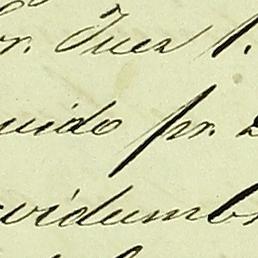 or. Juez 1.
uido pr. 2
vidumbr